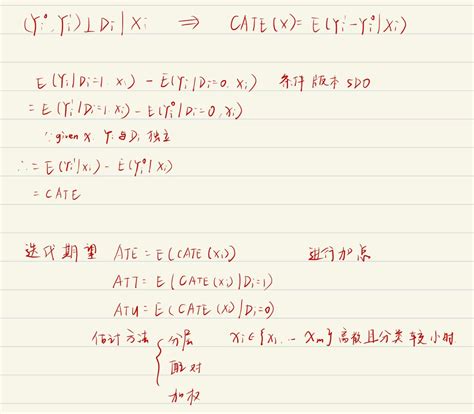 (Yi⁰, Yi¹) ⊥ Di | Xi ⇒ CATE(X) = E(Yi¹-Yi⁰|Xi)
E(Yi|Di=1, Xi) - E(Yi|Di=0, Xi) 条件版本 SDO
= E(Yi¹|Di=1, Xi) - E(Yi⁰|Di=0, Xi)
∵ given X, Yi 与 Di 独立
∴ = E(Yi¹|Xi) - E(Yi⁰|Xi)
= CATE
迭代期望 ATE = E(CATE(Xi)) 进行加总
ATT = E(CATE(Xi)|Di=1)
ATU = E(CATE(X)|Di=0)
估计方法 { 分层 Xi∈{X1, ... Xm} 离散且分类较小时
配对
加权